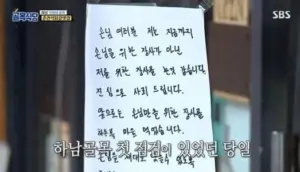 골목식당
SBS
손님 여러분 저는 지금까지
손님을 위한 장사가 아닌
저를 위한 장사를 한것 같습니다.
진심으로 사죄 드립니다.
앞으로는 손님만을 위한 장사를
하도록 마음 먹었습니다.
제대로
하남골목 첫 점검이 있었던 당일